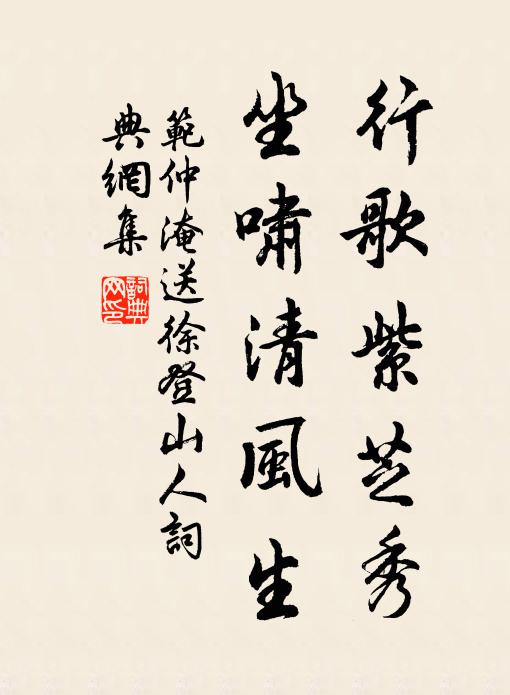 行歌紫芝秀
坐嘯清風生
範仲淹送徐登山人詞
典網集
詞典
网印